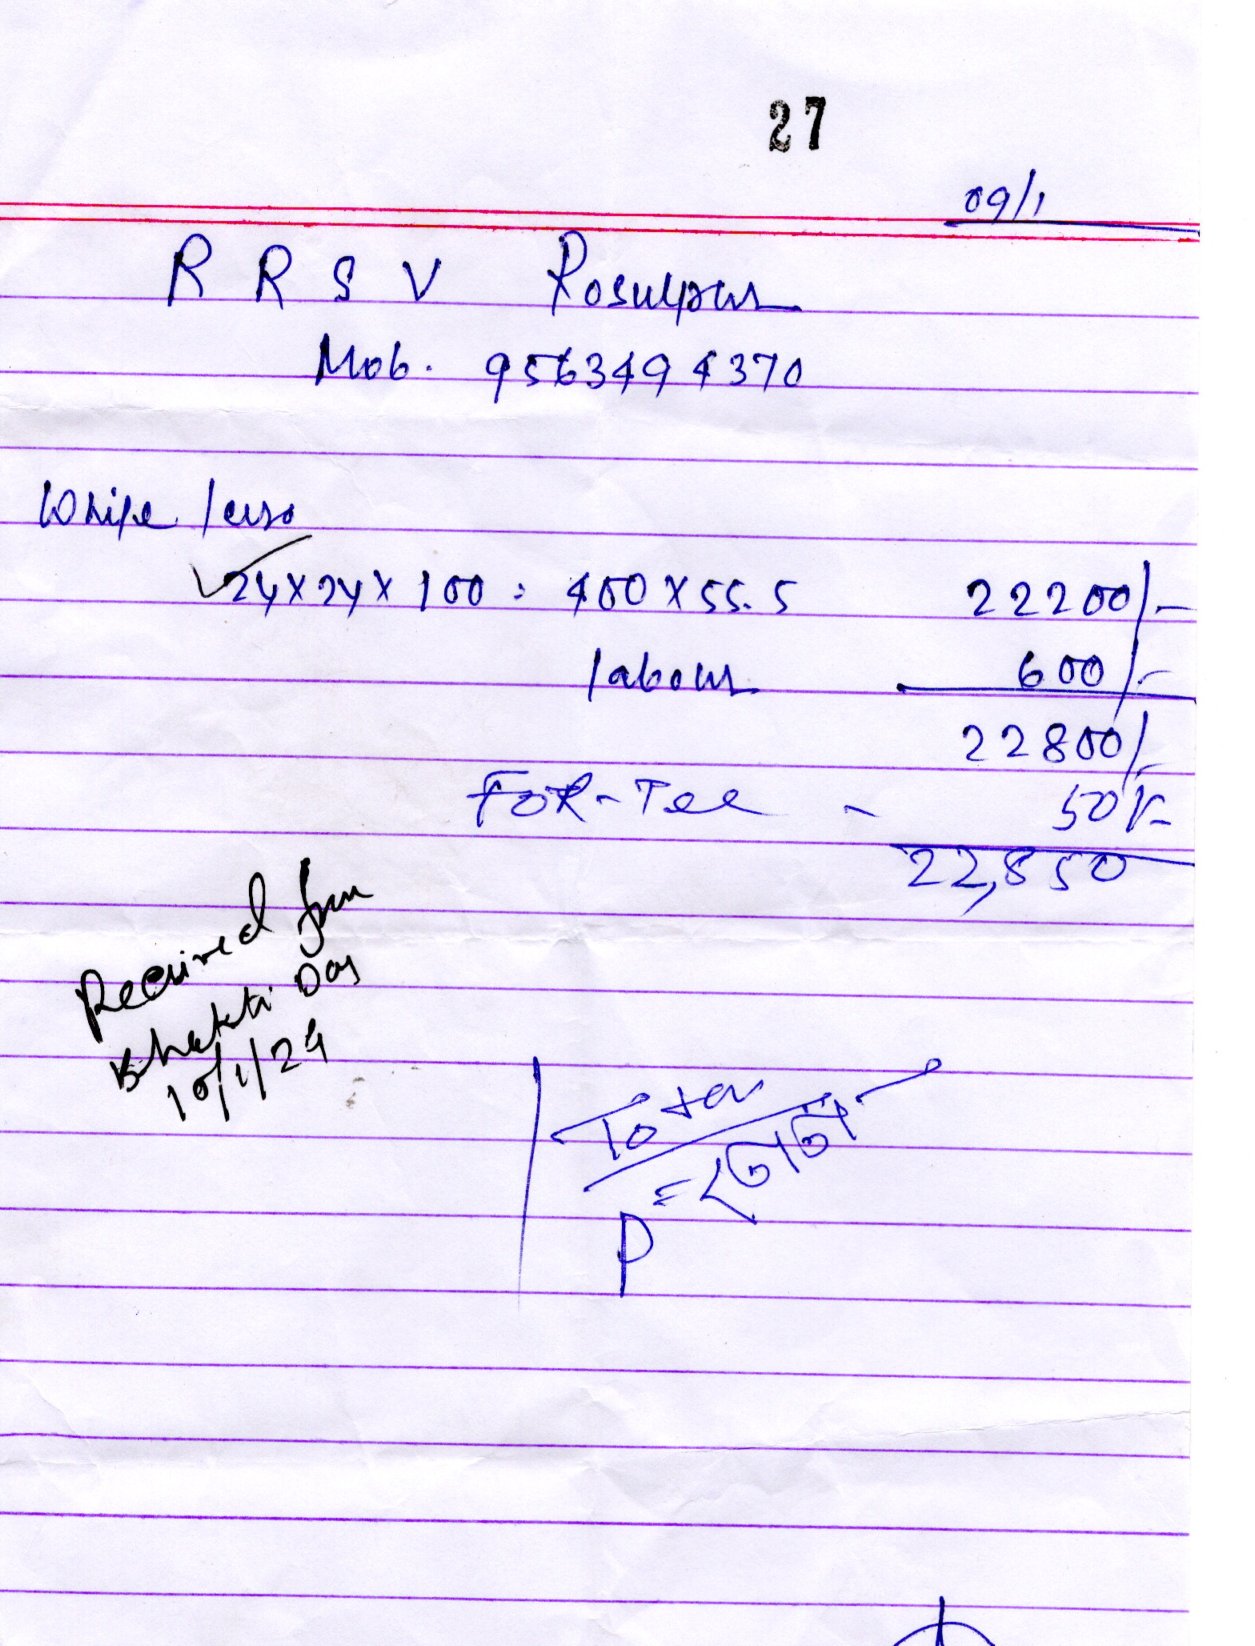 27
09/1
R R S V Rosulpur
Mob. 9563494370
White
24x24x100 = 400 x 55.5 22200/-
labour 600/-
22800/-
FOR-Tee - 50/-
22,850
Received from
Bhakti Das
10/1/24
Total
=
P